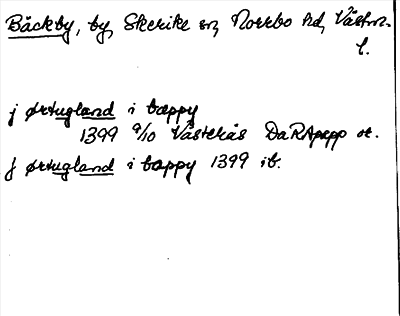 Bäckby, by, Skerike sn, Norrbo hd, Västm.
l.
j ørtugland i bæppy
1399 9/10 Västerås DaRApapp or.
j ørtugland i bæppy 1399 ib.